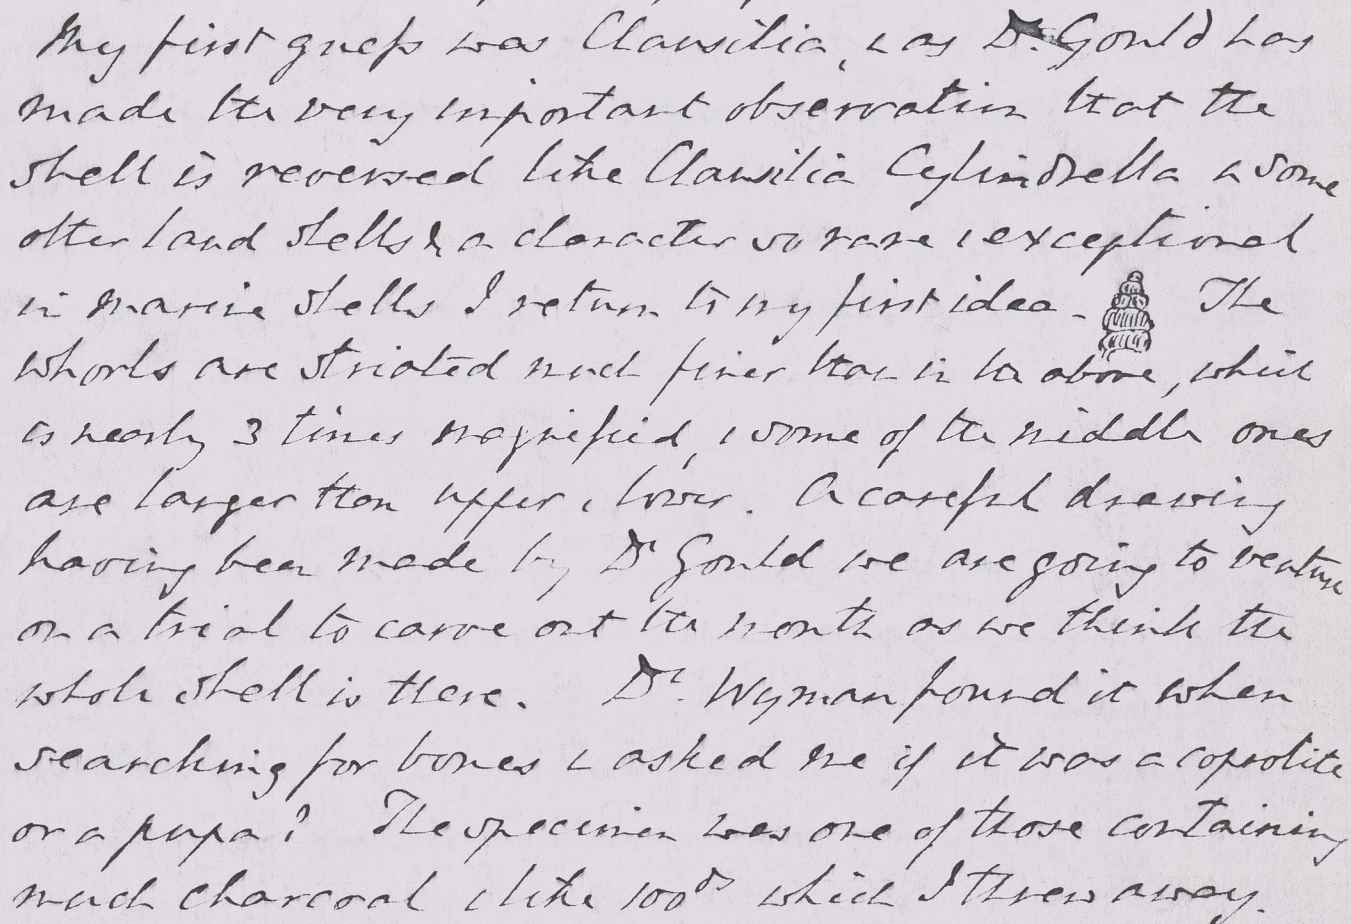 My first guess was Clausilia, & as Dr. Gould has
made the very important observation that the
shell is reversed like Clausilia Cylindrella & some
other land shells & a character so rare & exceptional
in marine shells I return to my first idea. The
whorls are striated much finer than in the above, which
is nearly 3 times magnified, & some of the middle ones
are larger than upper & lower. A careful drawing
having been made by Dr Gould we are going to venture
on a trial to carve out the mouth as we think the
whole shell is there. Dr. Wyman found it when
searching for bones & asked me if it was a coprolite
or a pupa? The specimen was one of those containing
much charcoal & like 100ds which I threw away.